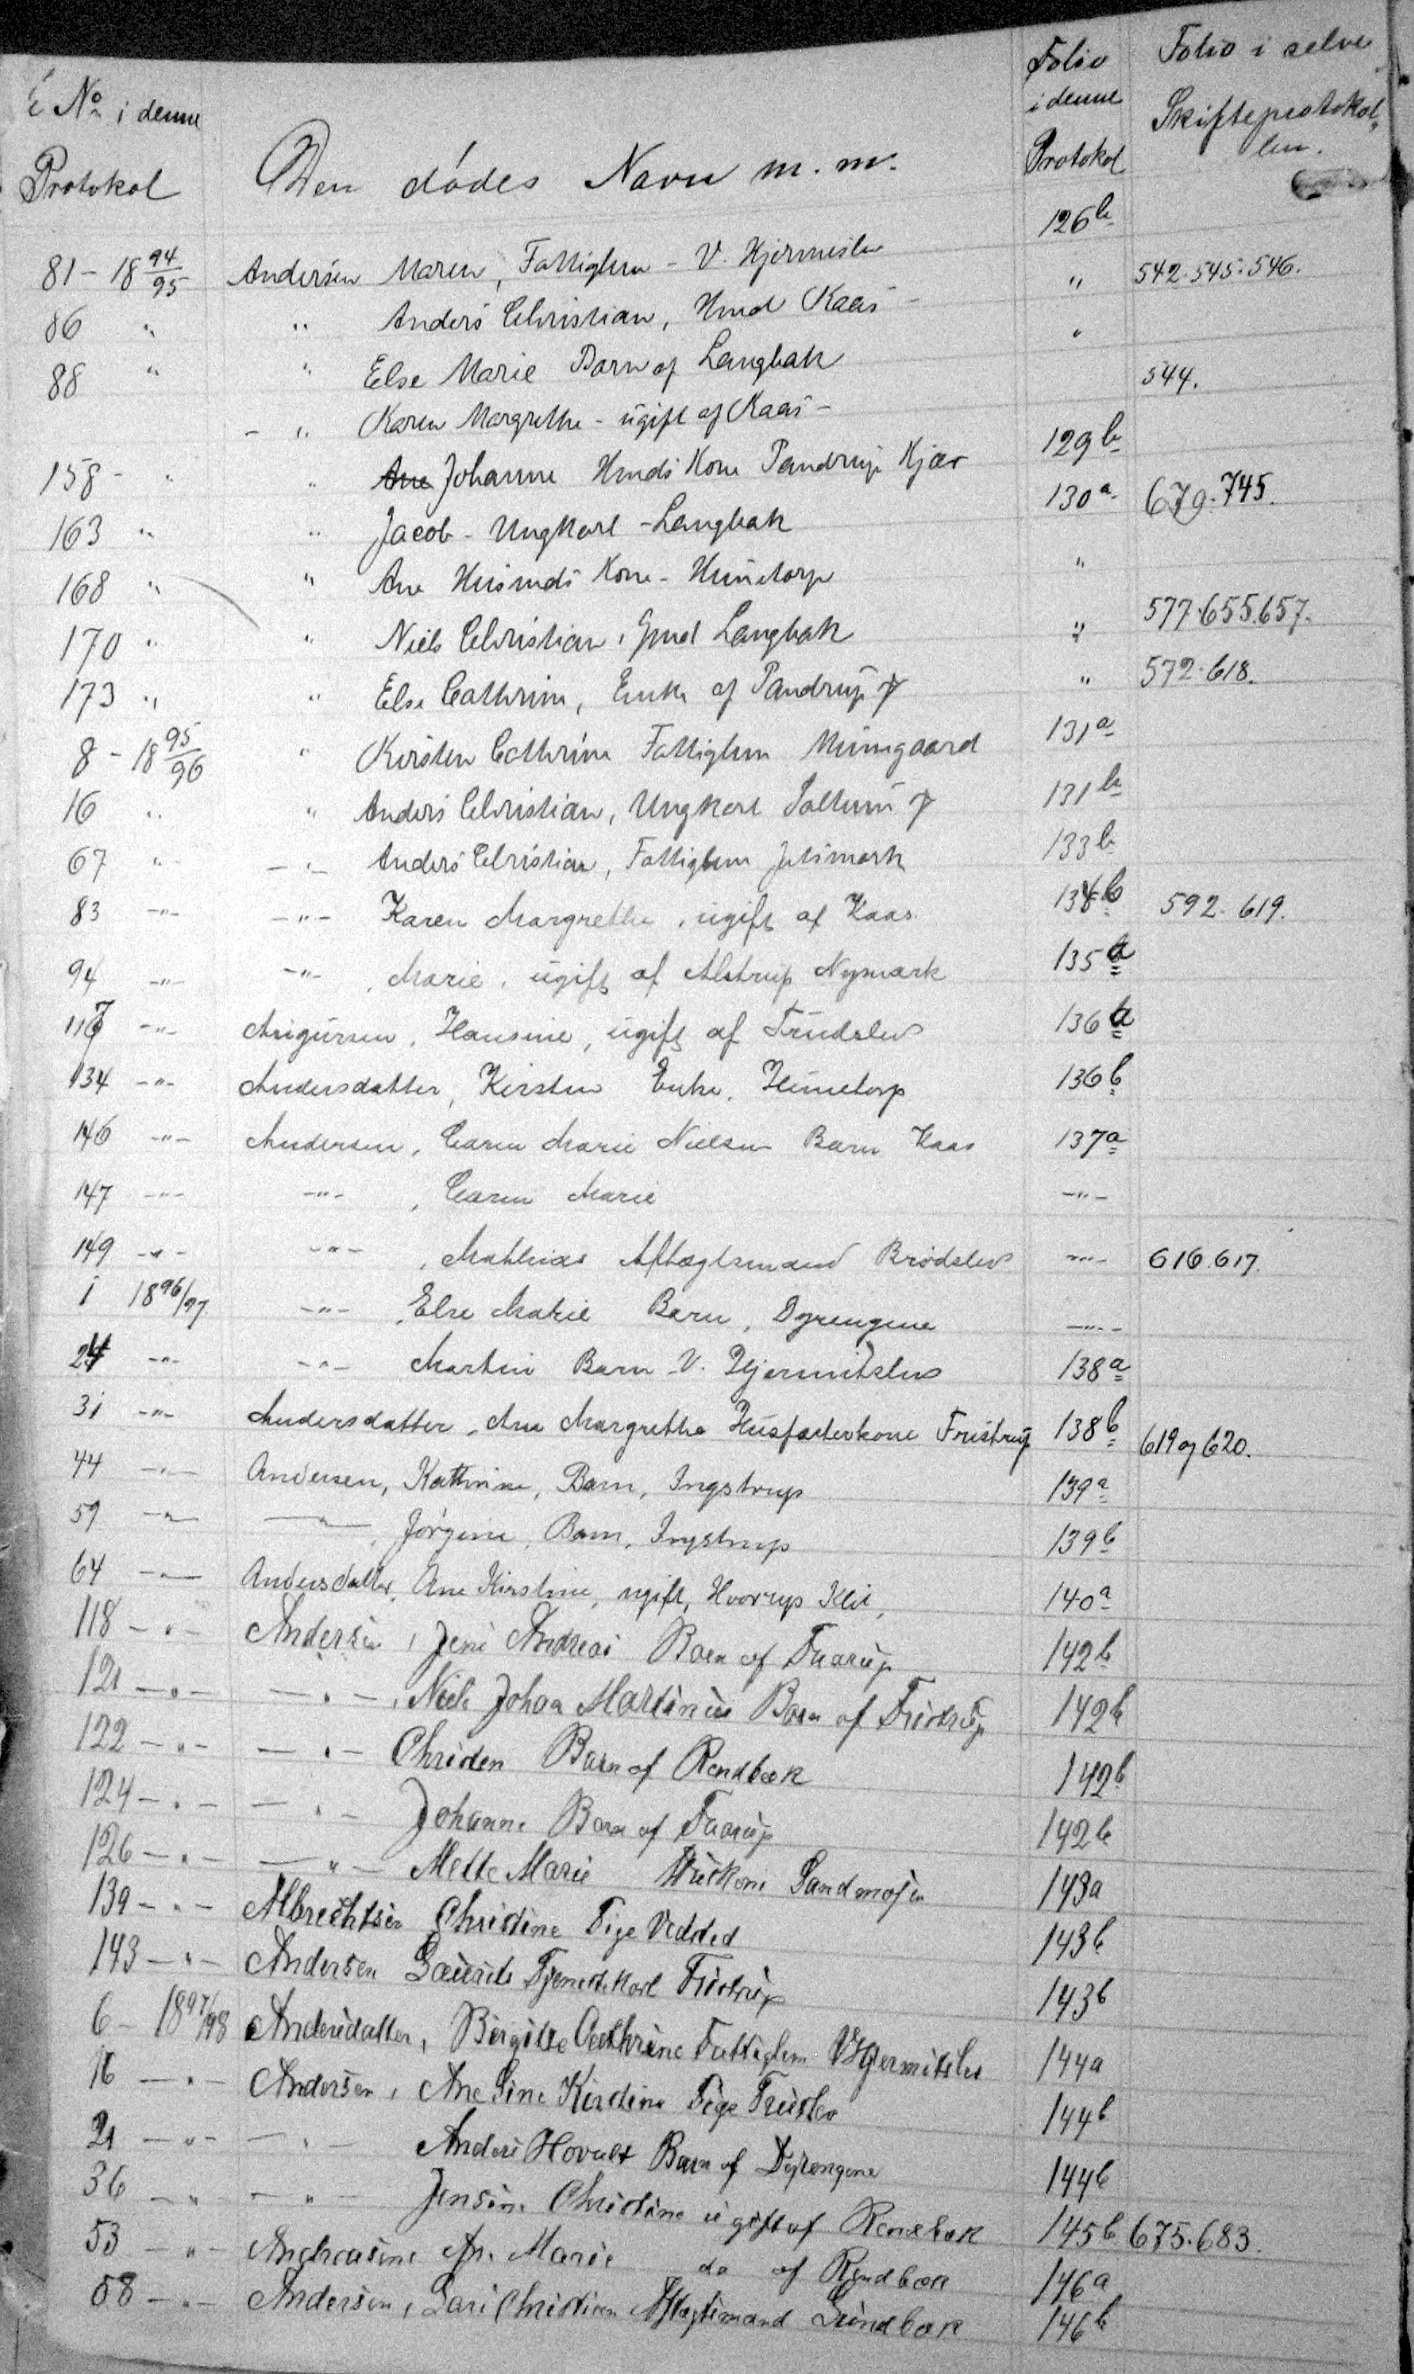 No i denne Protokol | Den dødes Navn m. m. | Folio i denne Protokol | Folio i selve Skifteprotokollen.
81 - 18 94/95 Andersen Maren, Fattiglem - V. Hjermeslev 126b
86 " " Anders Christian, Hmd Kaas - " 542.545.546.
88 " " Else Marie Barn af Langbak "
- " Karen Margrethe - ugift af Kaas - 544.
158 - " " Johanne Hmds Kone Pandrup Kjær 129b
163 " " Jacob - Ungkarl - Langbak 130a 679.745.
168 " " Ane Husmds Kone - Hunetorp "
170 " " Niels Christian, Gmd Langbak " 577.655.657.
173 " " Else Cathrine, Enke af Pandrup " 572.618.
8 - 18 95/96 " Kirsten Cathrine Fattiglem 131a
16 " " Anders Christian, Ungkarl Saltum 131b
67 " - " - Anders Christian, Fattiglem Jetsmark 133b
83 -"- -"- Karen Margrethe, ugift af Kaas 134b 592.619.
94 -"- -"- , Marie, ugift af Alstrup Nymark 135a
117 -"- , Hansine, ugift af Trudslev 136a
134 -"- Andersdatter, Kirsten Enke, Hunetorp 136b
146 -"- Andersen, Caren Marie Nielsen Barn Kaas 137a
147 -"- -"- , Caren Marie -"-
149 -"- -"- , Mathias Aftægtsmand Brødslev -"- 616.617.
1 1896/97 -"- , Else Marie Barn, Dyrengene -"-
24 -"- -"- Martin Barn V. Hjermitslev 138a
31 -"- Andersdatter, Ane Margrethe Husfæsterkone Fristrup 138b 619 og 620.
44 -"- Andersen, Kathrine, Barn, Ingstrup 139a
59 -"- -"- , Jørgine, Barn, Ingstrup 139b
64 -"- Andersdatter, Ane Kirstine, ugift, Hvorup Klit, 140a
118 -"- Andersen, Jens Andreas Barn af Faarup 142b
121 -"- -"- , Niels Johan Martinus Barn af Fristrup 142b
122 -"- -"- Christen Barn af Rendbæk 142b
124 -"- -"- Johanne Barn af Faarup 142b
126 -"- -"- Mette Marie Huskone Sandmosen 143a
139 -"- Albrechtsen Christine Pige Vedsted 143b
143 -"- Andersen Laurits Tjenestekarl Fristrup 143b
6 - 1897/98 Andersdatter, Birgitte Cathrine Fattiglem V Hjermitslev 144a
16 -"- Andersen, Ane Sine Kirstine Pige 144b
21 -"- -"- Anders Barn af Dyrengene 144b
36 -"- -"- Jensine Christine ugift af Rendbæk 145b 675.683.
53 -"- Andreasine Ane Marie do af Rendbæk 146a
58 -"- Andersen, Lars Christian Aftægtsmand 146b